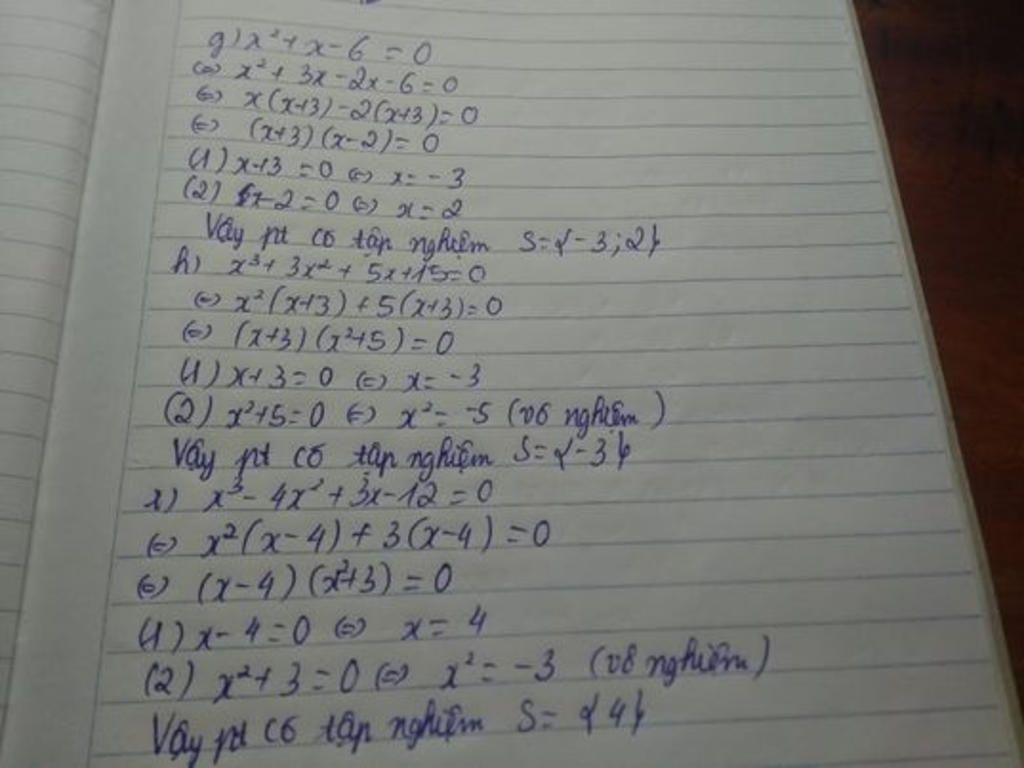 g) x² + x - 6 = 0
⇔ x² + 3x - 2x - 6 = 0
⇔ x(x+3) - 2(x+3) = 0
⇔ (x+3)(x-2) = 0
(1) x+3 = 0 ⇔ x = -3
(2) x-2 = 0 ⇔ x = 2
Vậy pt có tập nghiệm S = {-3; 2}
h) x³ + 3x² + 5x + 15 = 0
⇔ x²(x+3) + 5(x+3) = 0
⇔ (x+3)(x²+5) = 0
(1) x+3 = 0 ⇔ x = -3
(2) x²+5 = 0 ⇔ x² = -5 (vô nghiệm)
Vậy pt có tập nghiệm S = {-3}
x³ - 4x² + 3x - 12 = 0
⇔ x²(x-4) + 3(x-4) = 0
⇔ (x-4)(x²+3) = 0
(1) x-4 = 0 ⇔ x = 4
(2) x²+3 = 0 ⇔ x² = -3 (vô nghiệm)
Vậy pt có tập nghiệm S = {4}